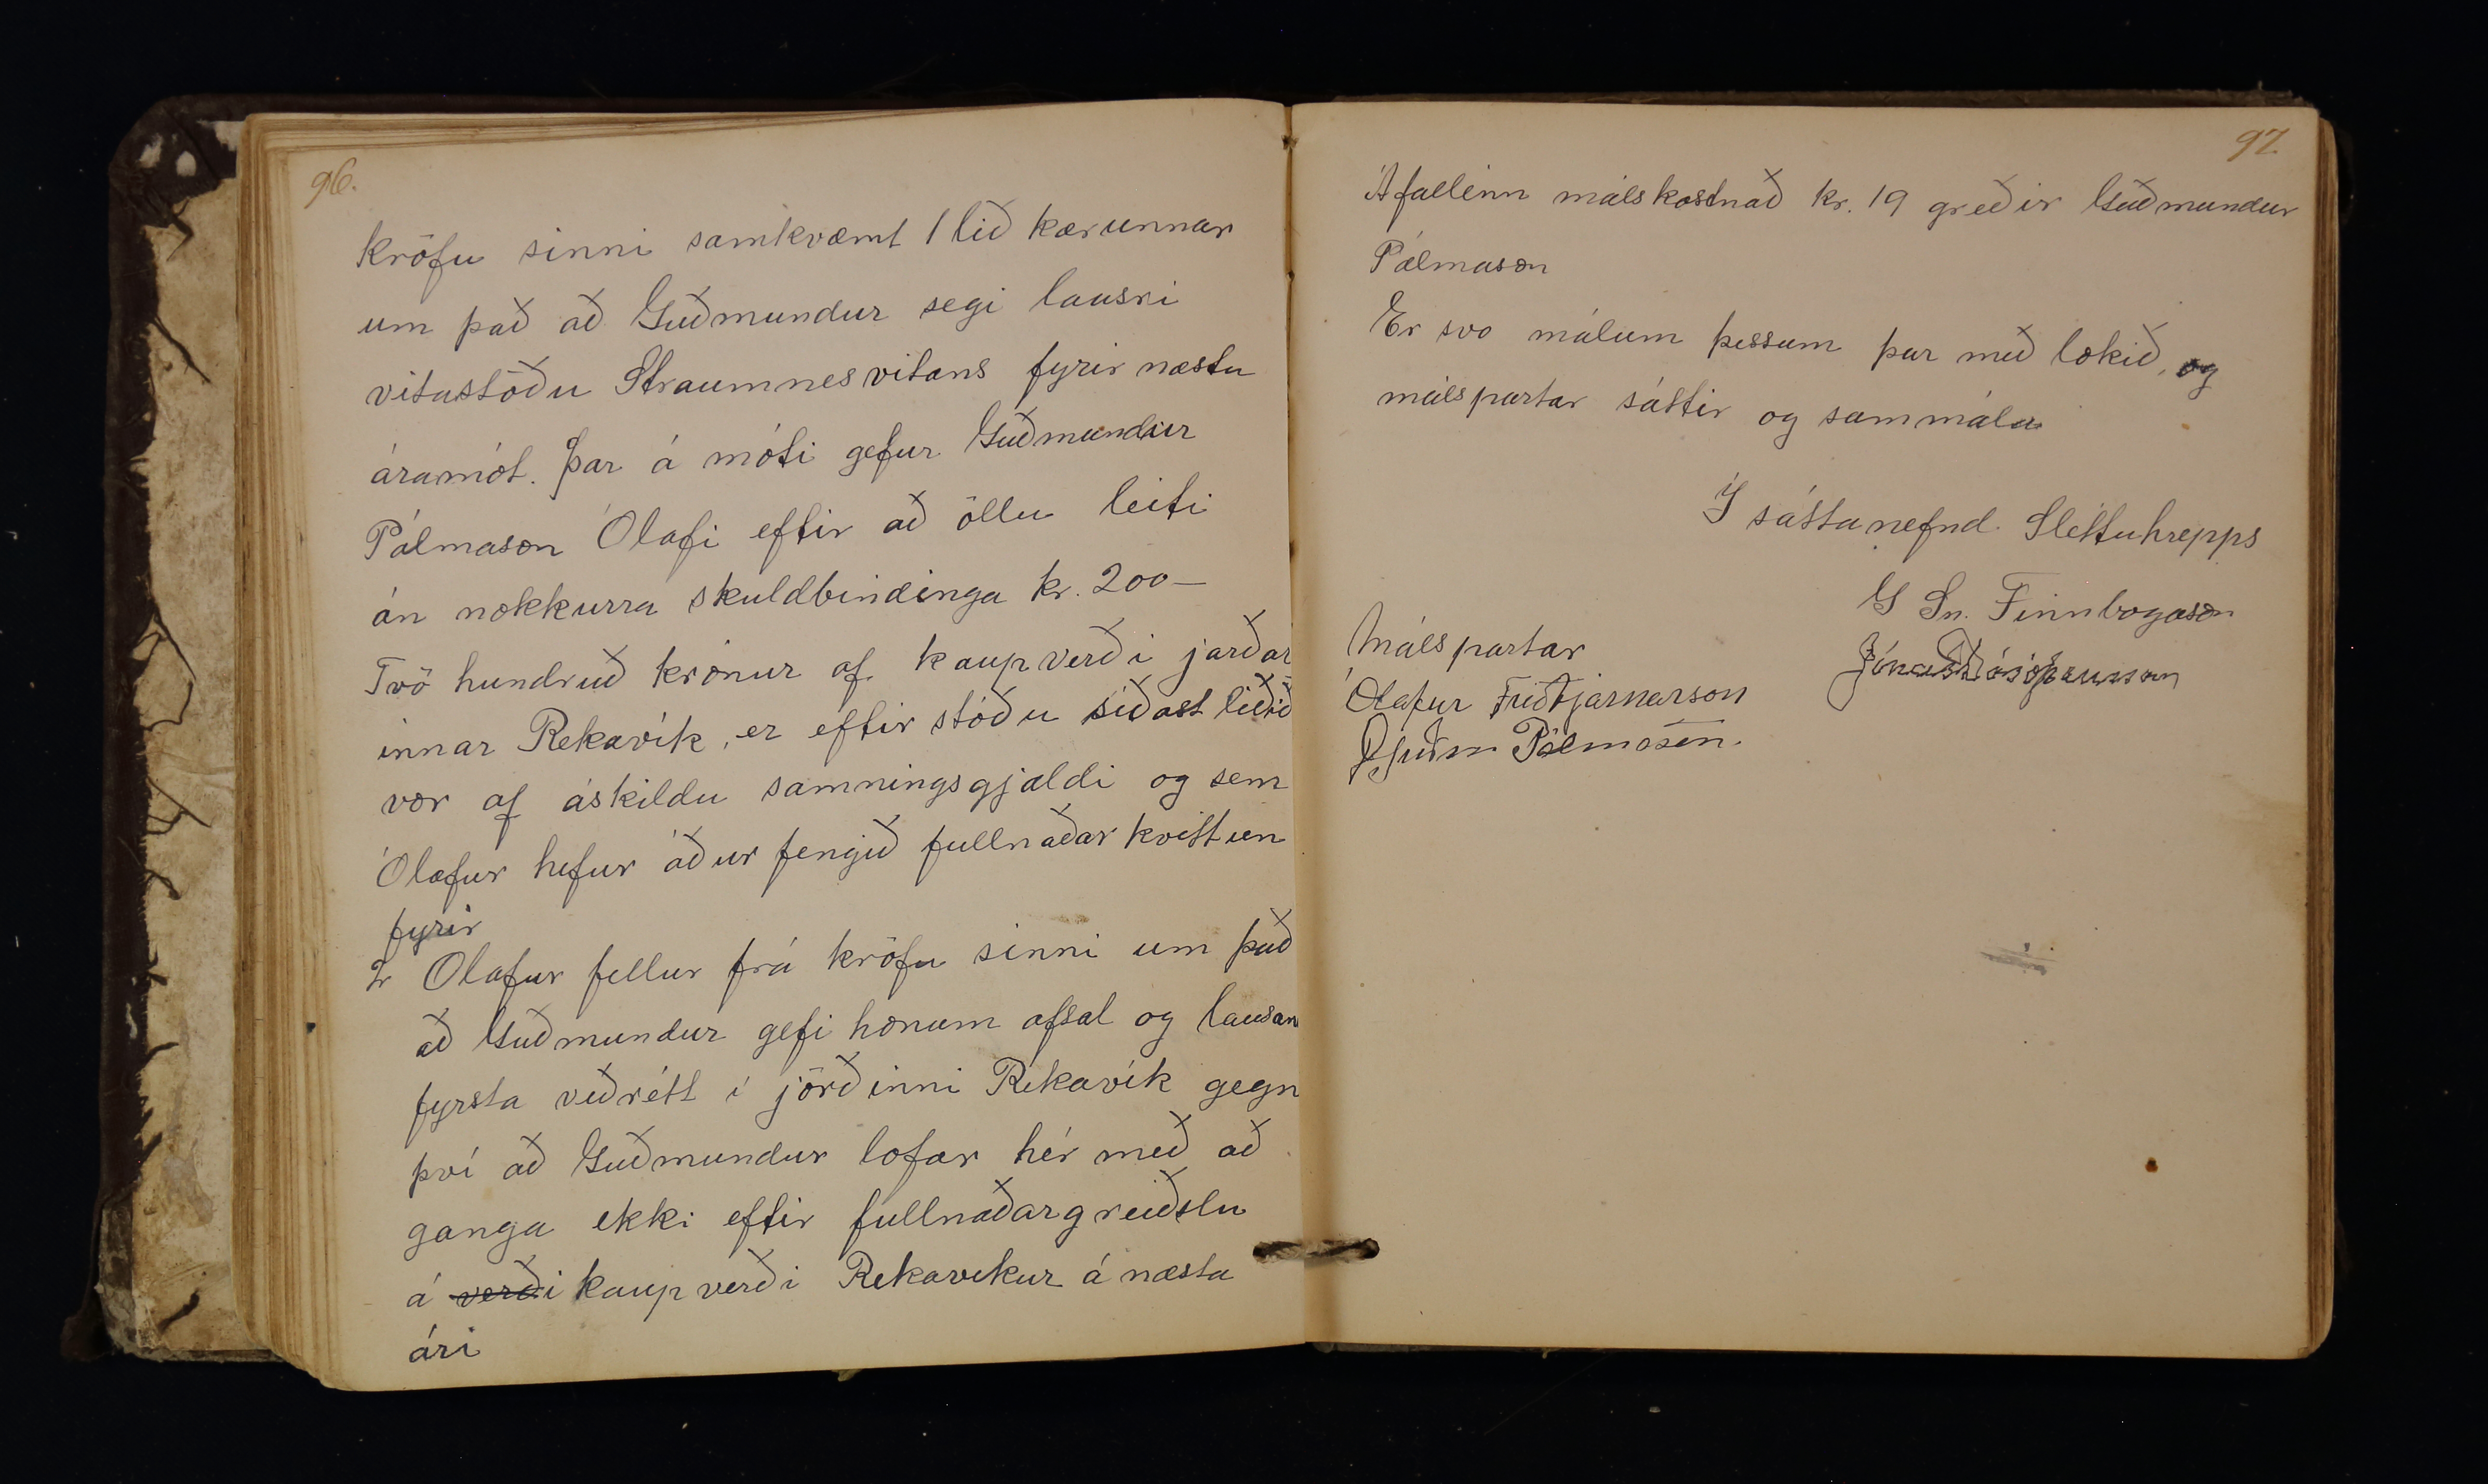 96.
kröfu sinni samkvæmt 1 lið kærunnar
um það að Guðmundur segi lausri
vitastöðu Straumnesvitans fyrir næstu
áramót. Þar á móti gefur Guðmundur
Pálmason Ólafi eftir að öllu leiti
án nokkurra skuldbindinga kr. 200—
Tvö hundruð krónur af kaupverði jarðar
innar Rekavík, er eftir stóðu síðast liðið
vor af áskildu samningsgjaldi og sem
Ólafur hefur áður fengið fullnaðar kvittun
fyrir
2r Olafur fellur frá kröfu sinni um það
að Guðmundur gefi honum afsal og lausan
fyrsta veðrétt í jörðinni Rekavík gegn
því að Guðmundur lofar hér með að
ganga ekki eftir fullnaðargreiðslu
á verði kaupverði Rekavikur á næsta
ári
97
Áfallinn málskostnað kr. 19 greðir Guðmundur
Pálmason
Er svo málum þessum þar með lokið, og
málspartar sáttir og sammála
Í sáttanefnd Sléttuhrepps
G Sn. Finnbogason
Málspartar
Ólafur Friðbjarnarson
Guðm Pálmason.